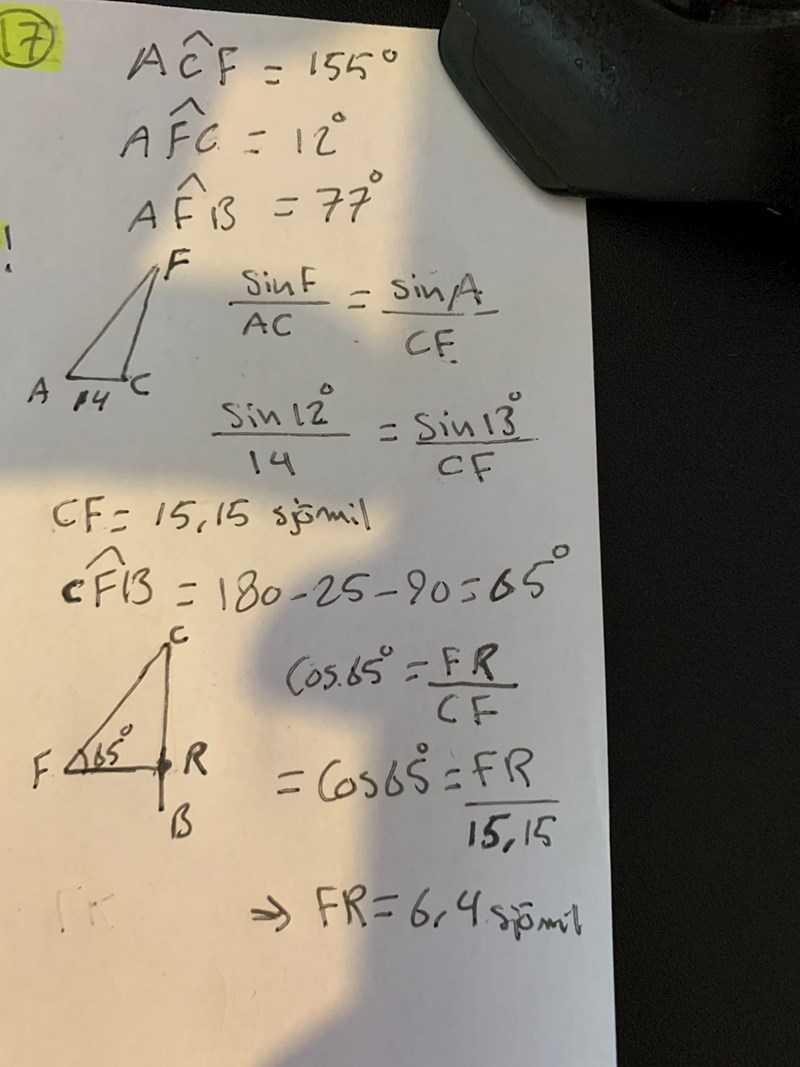 17
AĈF = 155°
AF̂C = 12°
AF̂B = 77°
!
F
A 14 C
sinF/AC = sinA/CF
sin12°/14 = sin13°/CF
CF = 15,15 sjömil
CF̂B = 180-25-90=65°
C
F 65° R
B
Cos.65° = FR/CF
= Cos65° = FR/15,15
⇒ FR = 6,4 sjömil